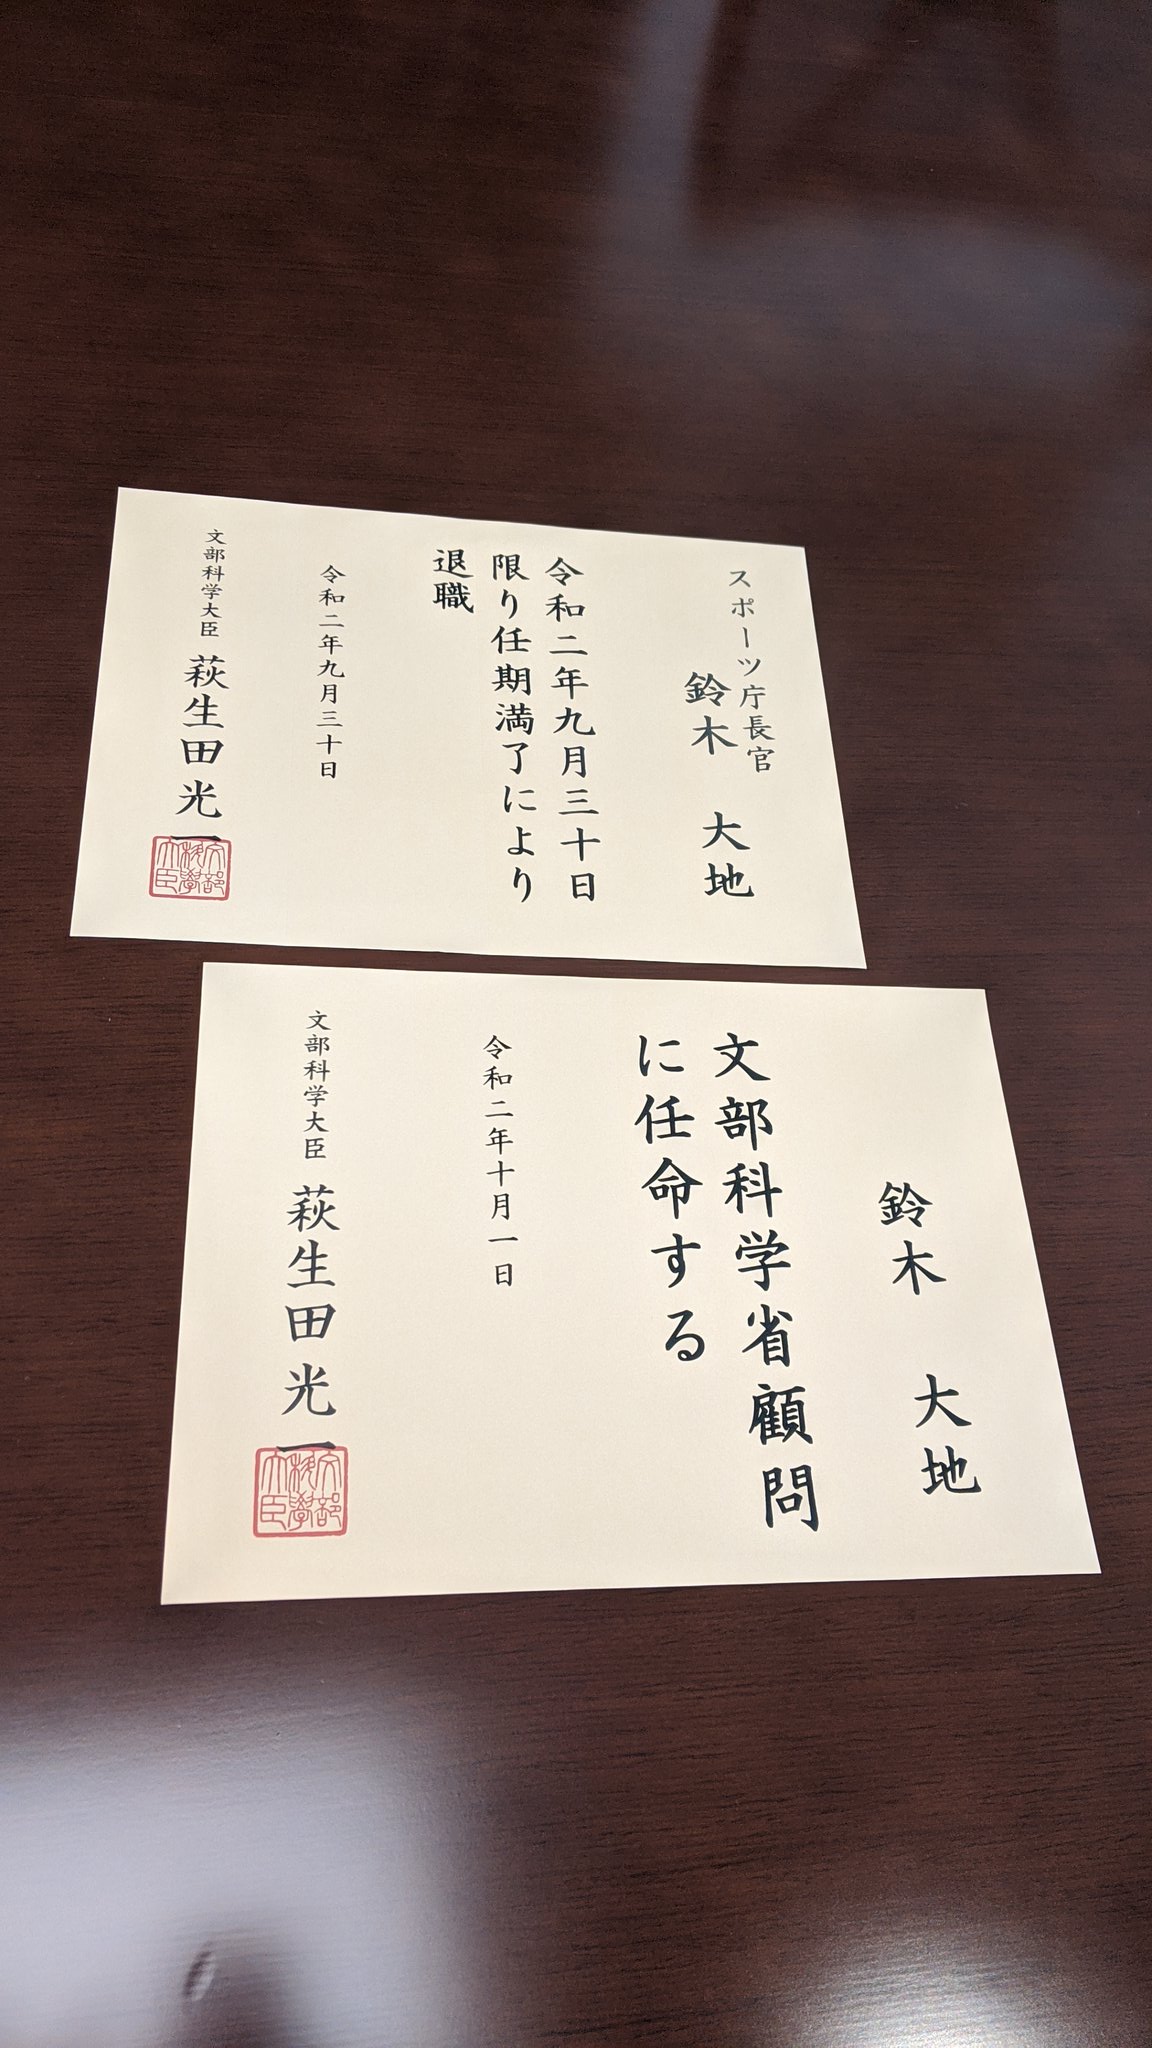 スポーツ庁長官
鈴木 大地
令和二年九月三十日
限り任期満了により
退職
令和二年九月三十日
文部科学大臣 萩生田光一
文部科學大臣
鈴木 大地
文部科学省顧問
に任命する
令和二年十月一日
文部科学大臣 萩生田光一
文部科學大臣